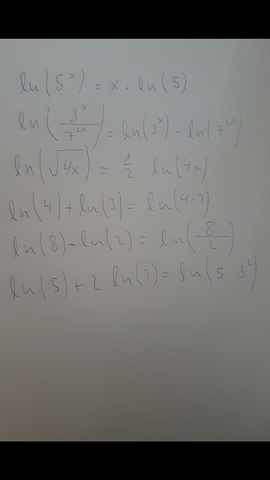 ln(5^x) = x · ln(5)
ln(3^x / 7^{2x}) = ln(3^x) - ln(7^{2x})
ln(√4x) = 1/2 · ln(4x)
ln(4) + ln(3) = ln(4·3)
ln(8) - ln(2) = ln(8/2)
ln(5) + 2 ln(3) = ln(5·3^2)